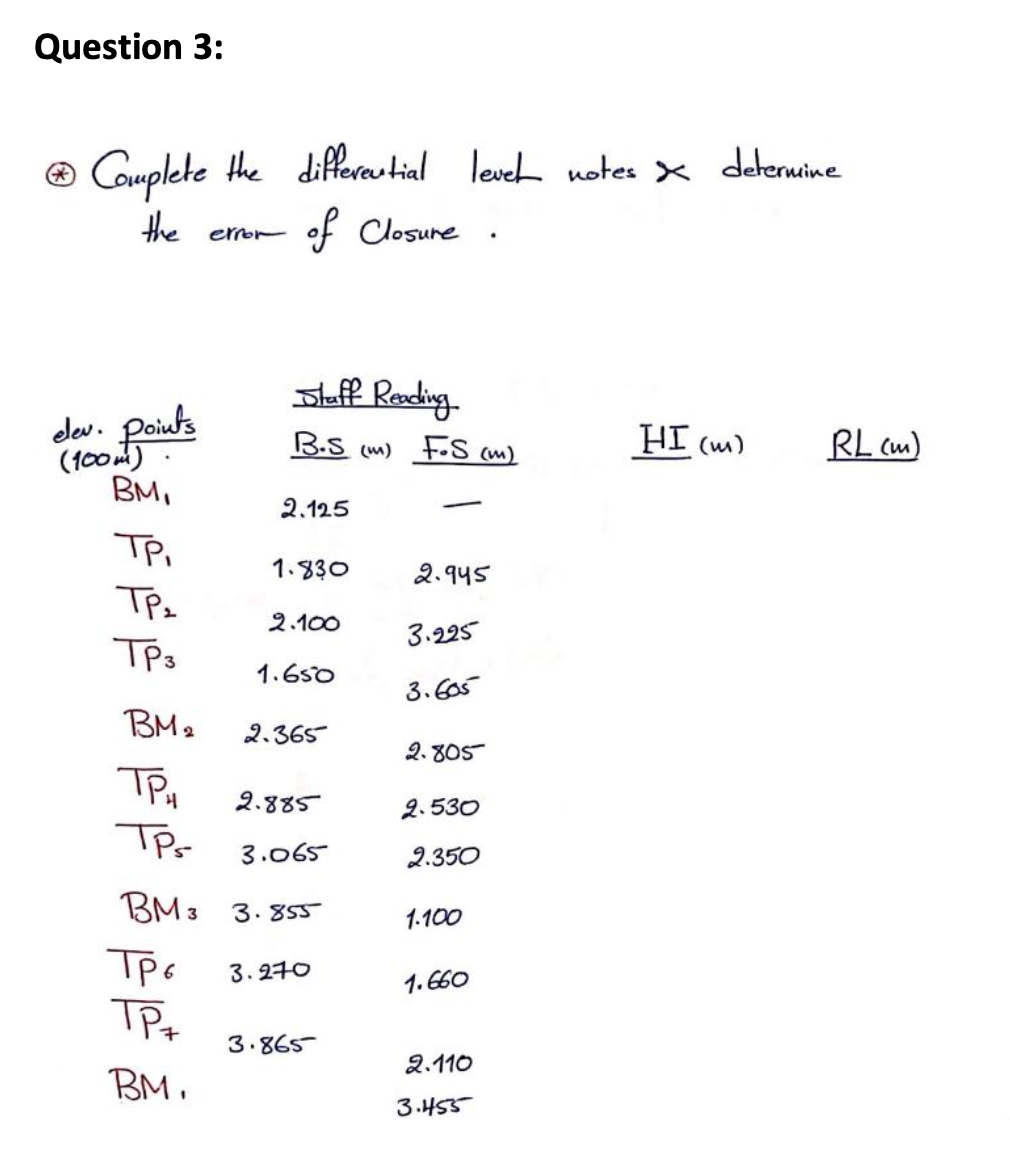 Question 3:
⊛ Complete the differential level notes & determine
the error of Closure .
Staff Reading
elev. points B.S (m) F.S (m) HI (m) RL (m)
(100m) .
BM1 2.125 —
TP1 1.830 2.945
TP2 2.100 3.225
TP3 1.650 3.605
BM2 2.365 2.805
TP4 2.885 2.530
TP5 3.065 2.350
BM3 3.855 1.100
TP6 3.270 1.660
TP7 3.865 2.110
BM1 3.455